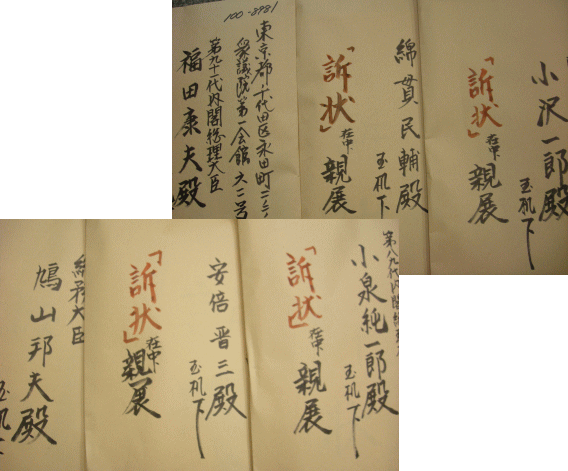 100-8981
東京都千代田区永田町二ー二ー一
衆議院第一会館六二号
第九十一代内閣総理大臣
福田康夫殿
綿貫民輔殿
玉机下
「訴状」在中
親展
小沢一郎殿
玉机下
「訴状」在中
親展
総務大臣
鳩山邦夫殿
玉机下
安倍晋三殿
玉机下
「訴状」在中
親展
小泉純一郎殿
玉机下
「訴状」在中
親展